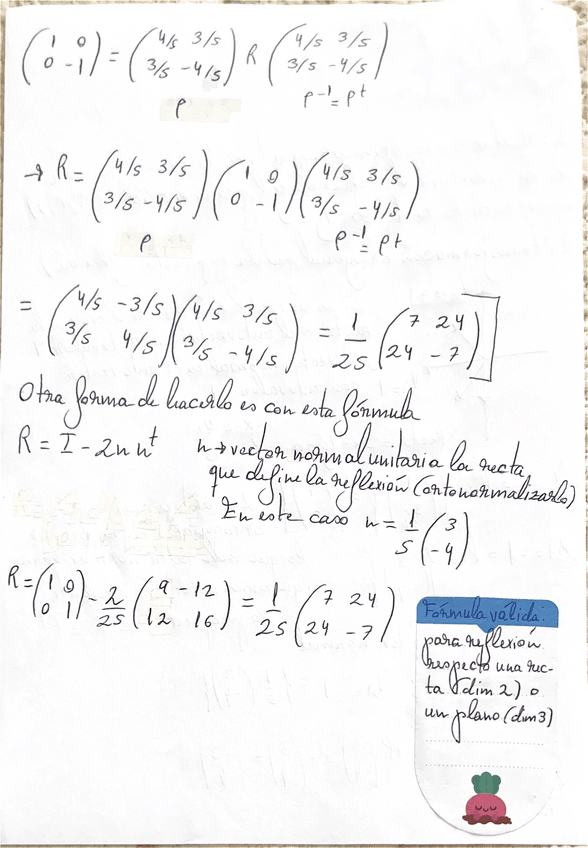 (1 0; 0 -1) = (4/5 3/5; 3/5 -4/5) R (4/5 3/5; 3/5 -4/5)
P P⁻¹ = Pᵗ
→ R = (4/5 3/5; 3/5 -4/5) (1 0; 0 -1) (4/5 3/5; 3/5 -4/5)
P P⁻¹ = Pᵗ
= (4/5 -3/5; 3/5 4/5) (4/5 3/5; 3/5 -4/5) = 1/25 (7 24; 24 -7)]
Otra forma de hacerlo es con esta fórmula
R = I - 2nnᵗ n → vector normal unitaria la recta
que define la reflexión (ortonormalizarlo)
En este caso n = 1/5 (3; -4)
R = (1 0; 0 1) - 2/25 (9 -12; 12 16) = 1/25 (7 24; 24 -7)
Fórmula válida:
para reflexión
respecto una rec-
ta (dim 2) o
un plano (dim 3)